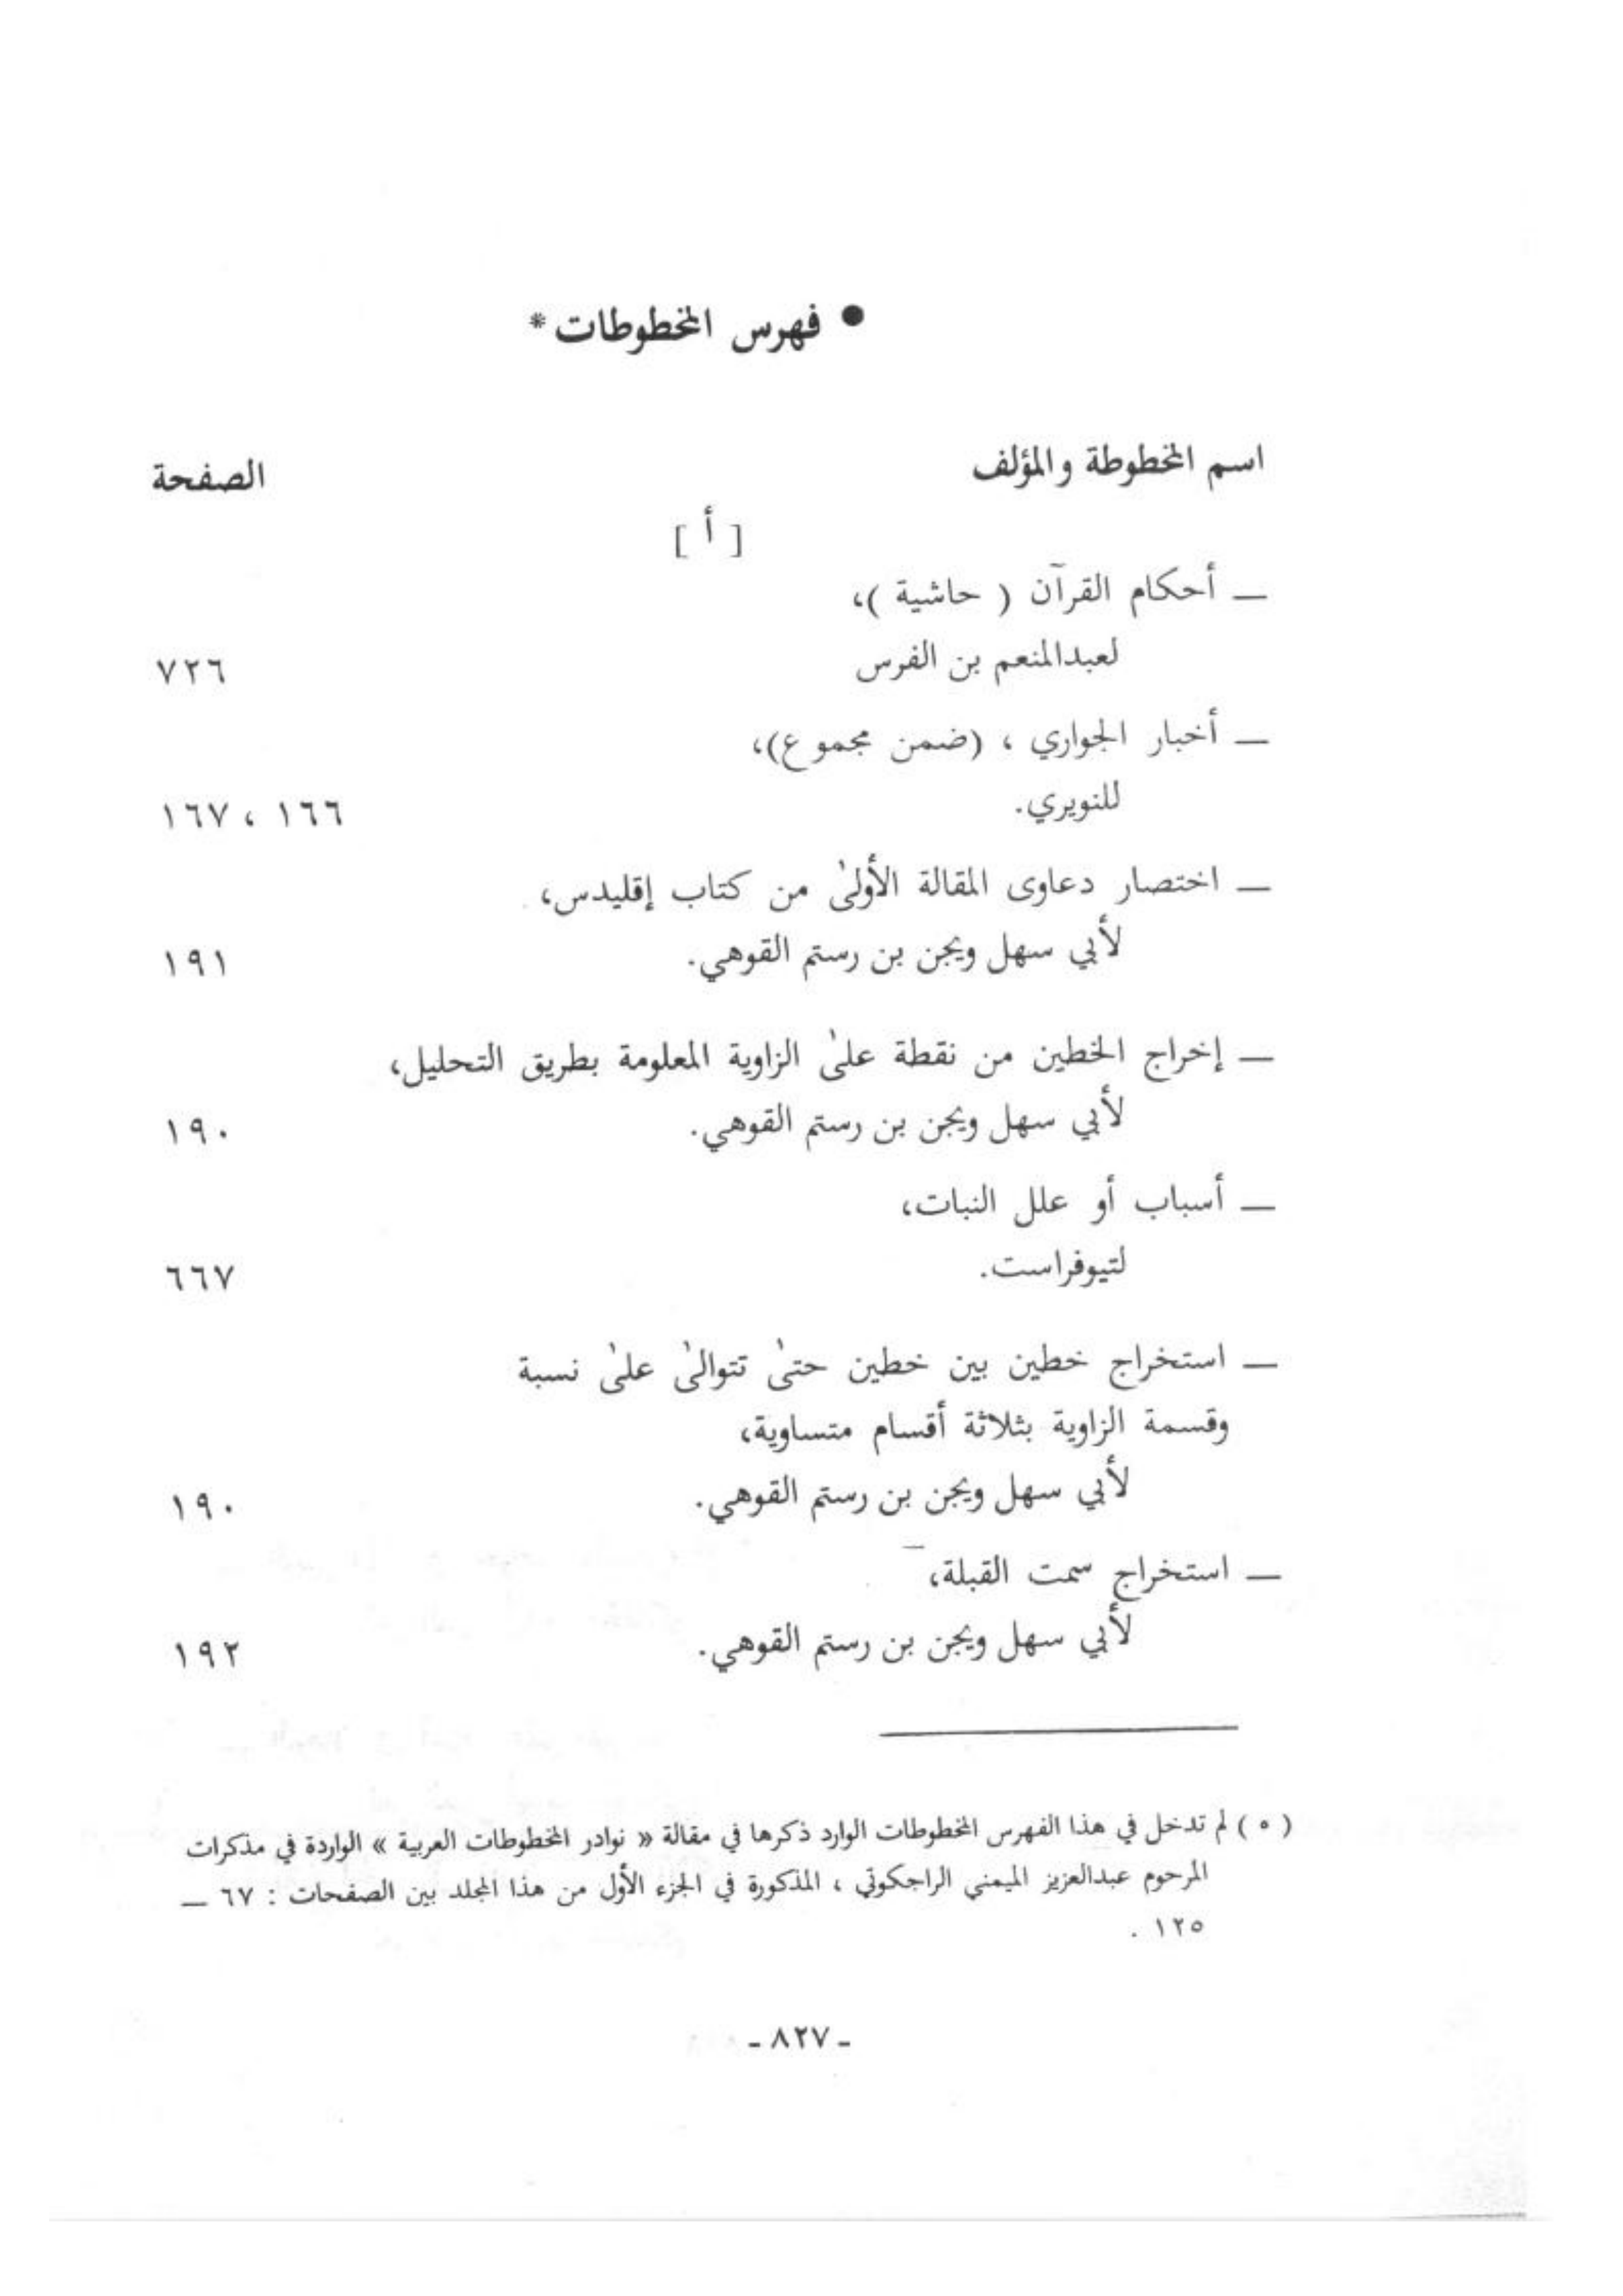 ● فهرس المخطوطات *
اسم المخطوطة والمؤلف الصفحة
[ أ ]
ــ أحكام القرآن ( حاشية )،
لعبدالمنعم بن الفرس ٧٢٦
ــ أخبار الجواري ، (ضمن مجموع)،
للنويري. ١٦٦ ، ١٦٧
ــ اختصار دعاوى المقالة الأولىٰ من كتاب إقليدس،
لأبي سهل ويجن بن رستم القوهي. ١٩١
ــ إخراج الخطين من نقطة علىٰ الزاوية المعلومة بطريق التحليل،
لأبي سهل ويجن بن رستم القوهي. ١٩٠
ــ أسباب أو علل النبات،
لتيوفراست. ٦٦٧
ــ استخراج خطين بين خطين حتىٰ تتوالىٰ علىٰ نسبة
وقسمة الزاوية بثلاثة أقسام متساوية،
لأبي سهل ويجن بن رستم القوهي. ١٩٠
ــ استخراج سمت القبلة،
لأبي سهل ويجن بن رستم القوهي. ١٩٢
( ٥ ) لم تدخل في هذا الفهرس المخطوطات الوارد ذكرها في مقالة « نوادر المخطوطات العربية » الواردة في مذكرات
المرحوم عبدالعزيز الميمني الراجكوتي ، المذكورة في الجزء الأول من هذا المجلد بين الصفحات : ٦٧ ــ
١٢٥ .
- ٨٢٧ -